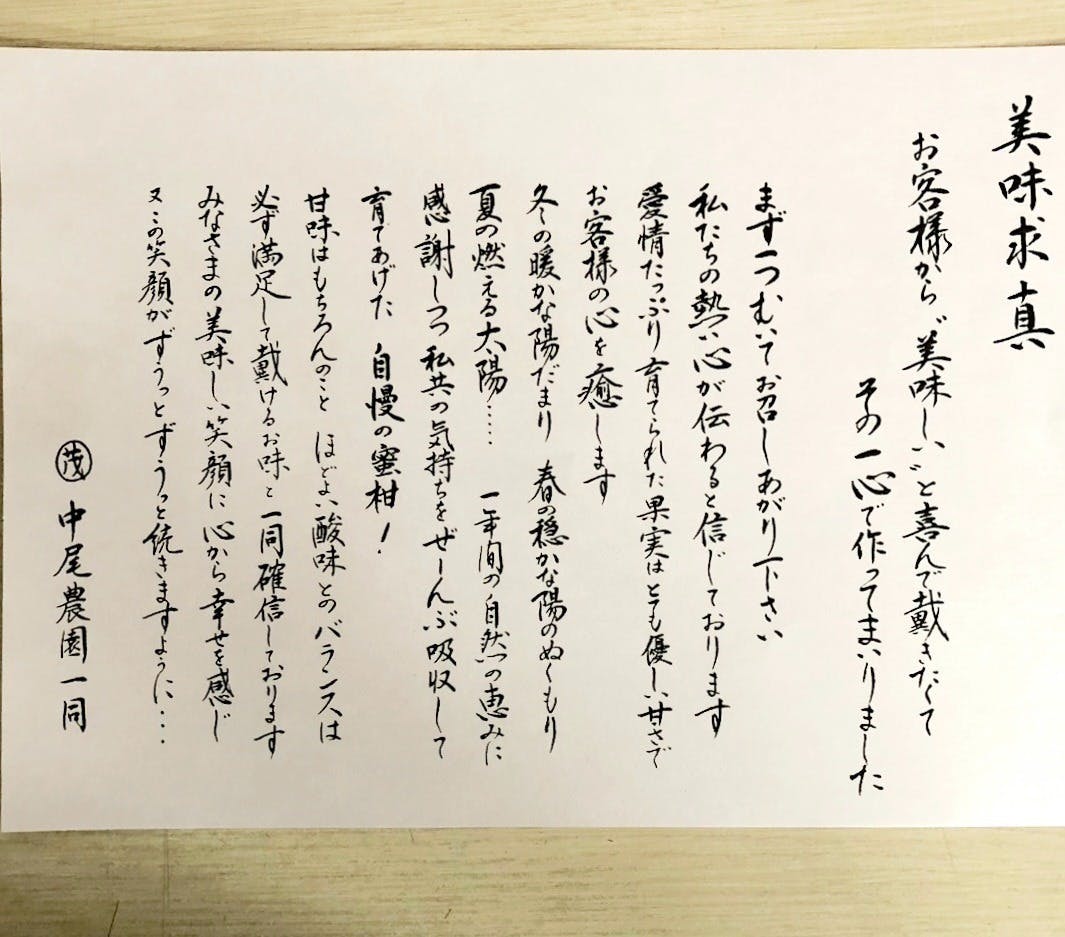 美味求真
お客様から〝美味しい〟と喜んで戴きたくて
その一心で作ってまいりました
まず一つむいてお召しあがり下さい
私たちの熱い心が伝わると信じております
愛情たっぷり育てられた果実はとても優しい甘さで
お客様の心を癒します
冬の暖かな陽だまり 春の穏かな陽のぬくもり
夏の燃える太陽…… 一年間の自然の恵みに
感謝しつつ私共の気持ちをぜーんぶ吸収して
育てあげた 自慢の蜜柑!
甘味はもちろんのこと ほどよい酸味とのバランスは
必ず満足して戴けるお味と一同確信しております
みなさまの美味しい笑顔に心から幸せを感じ
又この笑顔がずうっとずうっと続きますように…
㊀茂 中尾農園一同